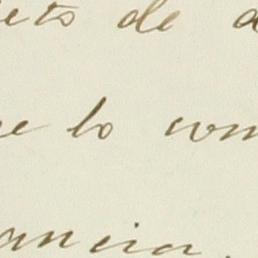 eto de a
e lo com
ancia.